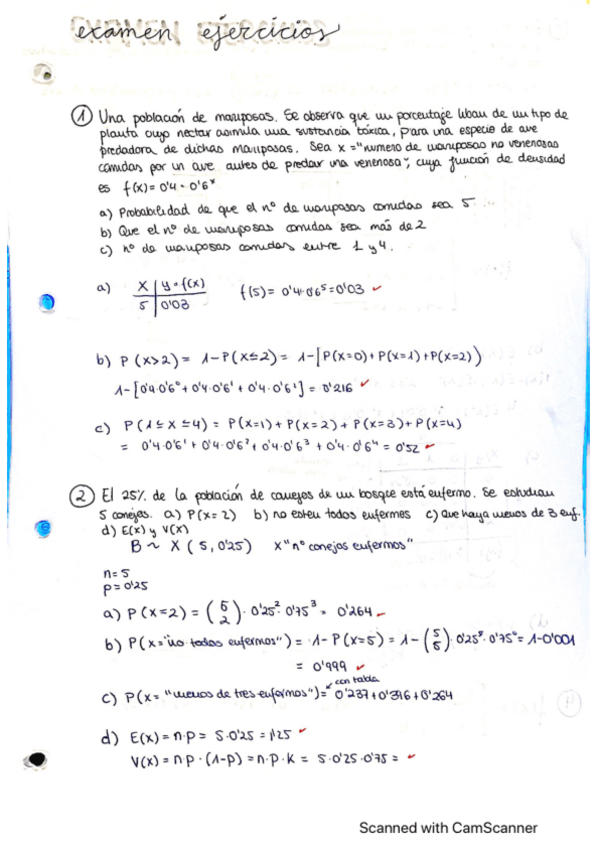 examen ejercicios
① Una población de mariposas. Se observa que un porcentaje liban de un tipo de
planta cuyo nectar asimila una sustancia tóxica, para una especie de ave
predadora de dichas mariposas. Sea x = "numero de mariposas no venenosas
comidas por un ave antes de predar una venenosa"; cuya función de densidad
es f(x) = 0'4 · 0'6ˣ
a) Probabilidad de que el nº de mariposas comidas sea 5
b) Que el nº de mariposas comidas sea más de 2
c) nº de mariposas comidas entre 1 y 4.
a) x | y = f(x) f(5) = 0'4 · 0'6⁵ = 0'03 ✓
5 | 0'03
b) P (x>2) = 1 - P(x≤2) = 1 - [P(x=0) + P(x=1) + P(x=2))
1 - [0'4·0'6⁰ + 0'4·0'6¹ + 0'4·0'6²] = 0'216 ✓
c) P (1 ≤ x ≤ 4) = P(x=1) + P(x=2) + P(x=3) + P(x=4)
= 0'4·0'6¹ + 0'4·0'6² + 0'4·0'6³ + 0'4·0'6⁴ = 0'52 ✓
② El 25% de la población de conejos de un bosque está enfermo. Se estudian
5 conejos. a) P(x=2) b) no estén todos enfermos c) Que haya menos de 3 enf.
d) E(x) y V(x)
B ~ X (5, 0'25) x "nº conejos enfermos"
n=5
p=0'25
a) P(x=2) = (5 2) · 0'25² · 0'75³ = 0'264 ✓
b) P(x="no todos enfermos") = 1 - P(x=5) = 1 - (5 5) · 0'25⁵ · 0'75⁰ = 1 - 0'001
= 0'999 ✓
con tabla
c) P(x = "menos de tres enfermos") = 0'237 + 0'396 + 0'264
d) E(x) = n·p = 5·0'25 = 1'25 ✓
V(x) = n p · (1-p) = n·p·k = 5·0'25·0'75 = ✓
Scanned with CamScanner